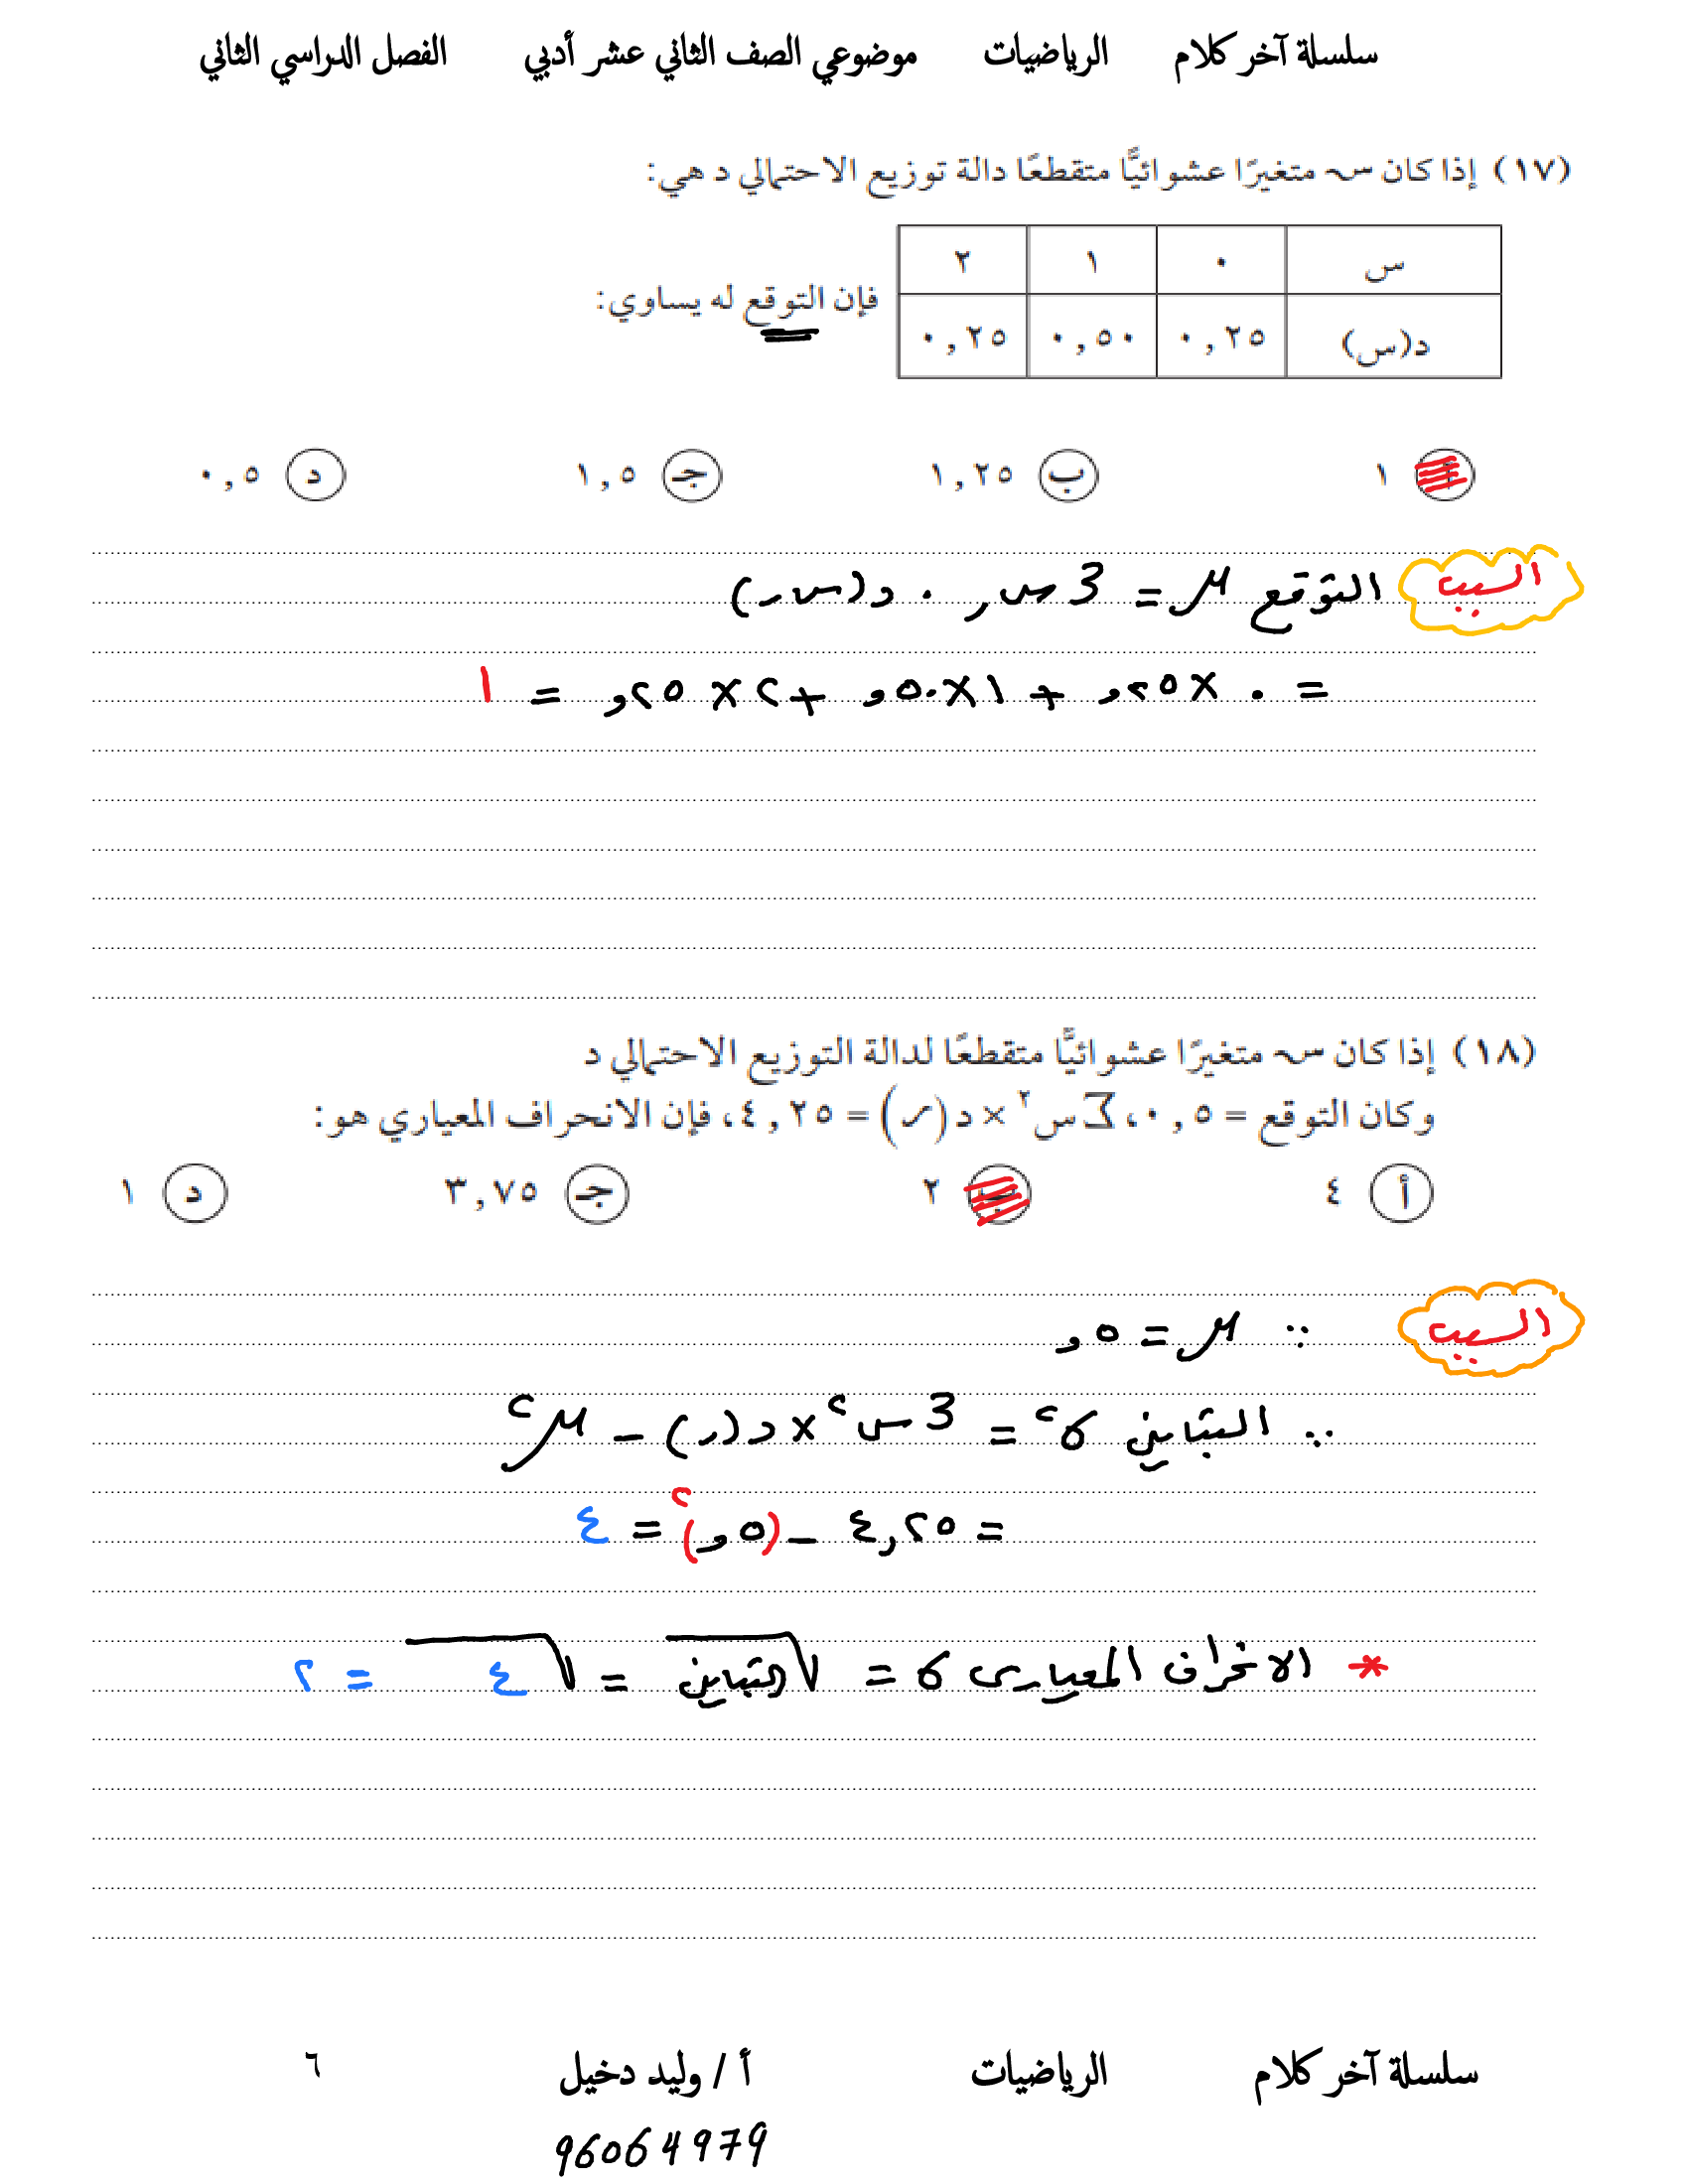 سلسلة آخر كلام الرياضيات موضوعي الصف الثاني عشر أدبي الفصل الدراسي الثاني
(١٧) إذا كان س متغيرًا عشوائيًّا متقطعًا دالة توزيع الاحتمالي د هي:
س ٠ ١ ٢
د(س) ٠,٢٥ ٠,٥٠ ٠,٢٥
فإن التوقع له يساوي:
أ ١ ب ١,٢٥ جـ ١,٥ د ٠,٥
السبب التوقع μ = Σ س ر . د(س ر)
= ٠ × ٢٥, + ١ × ٥٠, + ٢ × ٢٥, = ١
(١٨) إذا كان س متغيرًا عشوائيًّا متقطعًا لدالة التوزيع الاحتمالي د
وكان التوقع = ٠,٥، Σ س٢ × د(ر) = ٤,٢٥، فإن الانحراف المعياري هو:
أ ٤ ب ٢ جـ ٣,٧٥ د ١
السبب ∵ μ = ٥,
∵ التباين σ٢ = Σ س٢ × د(ر) – μ٢
= ٤,٢٥ – (٥,)٢ = ٤
* الانحراف المعيارى σ = √التباين = √٤ = ٢
سلسلة آخر كلام الرياضيات أ / وليد دخيل ٦
96064979